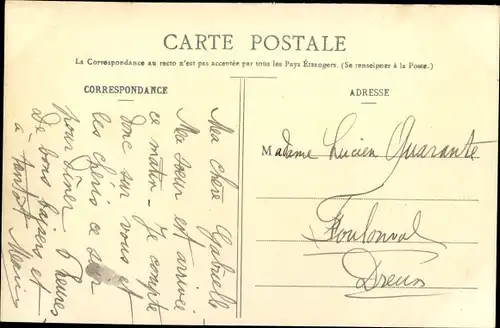 CARTE POSTALE
La Correspondance au recto n'est pas acceptée par tous les Pays Étrangers. (Se renseigner à la Poste.)
CORRESPONDANCE
Ma chère Gabrielle
Ma sœur est arrivée
ce matin - Je compte
donc sur vous et
les chéris ce soir
pour dîner 6 heures
De bons baisers et
à tantôt Marie
ADRESSE
Madame Lucien Quarante
Foulonval
Dreux